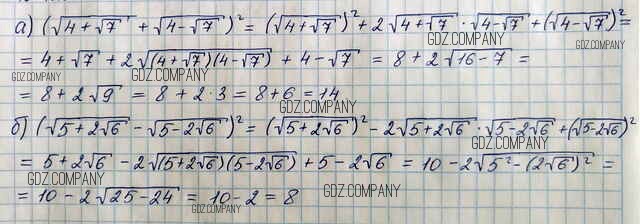 а) (√(4+√7) + √(4-√7))² = (√(4+√7))² + 2√(4+√7) · √(4-√7) + (√(4-√7))² =
GDZ.COMPANY GDZ.COMPANY
= 4+√7 + 2√((4+√7)(4-√7)) + 4-√7 = 8+2√(16-7) =
GDZ.COMPANY GDZ.COMPANY
= 8+2√9 = 8+2·3 = 8+6 = 14
GDZ.COMPANY
б) (√(5+2√6) - √(5-2√6))² = (√(5+2√6))² - 2√(5+2√6) · √(5-2√6) + (√(5-2√6))²
GDZ.COMPANY
= 5+2√6 - 2√((5+2√6)(5-2√6)) + 5-2√6 = 10-2√(5²-(2√6)²) =
GDZ.COMPANY GDZ.COMPANY
= 10-2√(25-24) = 10-2 = 8
GDZ.COMPANY